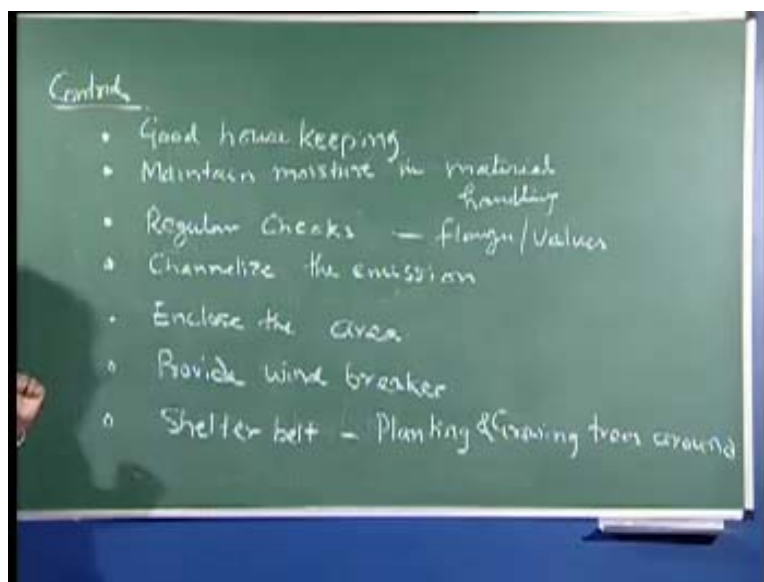 Control
• Good house keeping
• Maintain moisture in material
handling
• Regular Checks – flange/valves
• Channelize the emission
• Enclose the area
• Provide wind breaker
• Shelter belt – Planting & Growing trees around